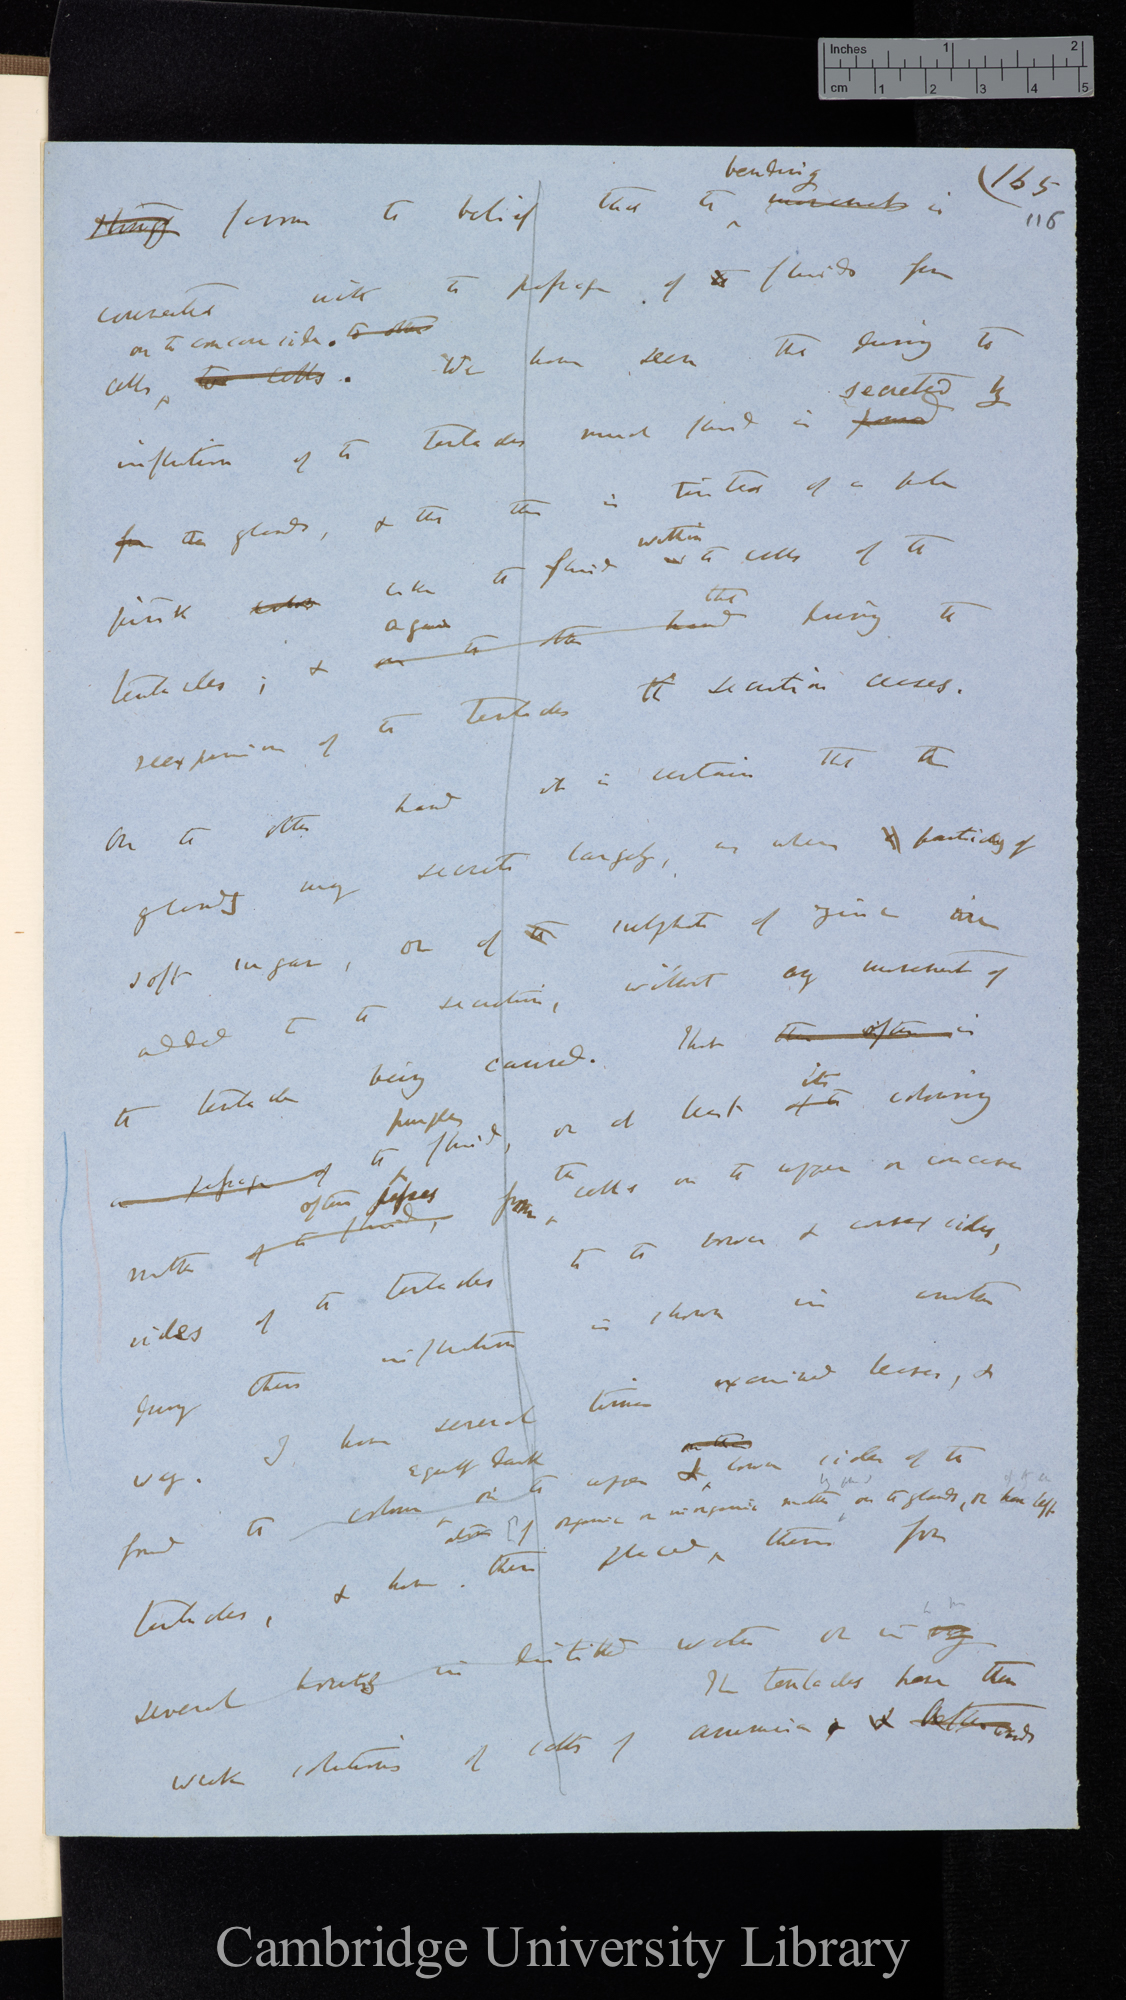 (165
116
bending
favour the belief that the movements is
connected with the passage of the fluids from
on the concave side. to other
cells, two cells. We have seen that during the
secreted by
inflection of the tentacles much fluid is
from the glands, & that this is tinted of a pale
within
pink colour like the fluid in the cells of the
again that
tentacles; & on the other hand during the
reexpansion of the tentacles the secretion ceases.
On the other hand it is certain that the
glands may secrete largely, as when particles of
soft sugar, or of the sulphate of quinine are
added to the secretion, without any movement of
the tentacle being caused. That then often is
purple its
a passage of the fluid, or at least of the colouring
often passes the
matter of the fluid, from cells on the upper or concave
sides of the tentacles to the lower & convex sides,
during their inflection is shown in another
way. I have several times examined leaves, &
equally dark on the
found the colour on the upper & lower sides of the
after if organic or inorganic matter on the glands, or have left
tentacles, & have then placed them for
several hours in distilled water or in
The tentacles have then
weak solutions of salts of ammonia & afterwards
Inches 1 2
cm 1 2 3 4 5
Cambridge University Library